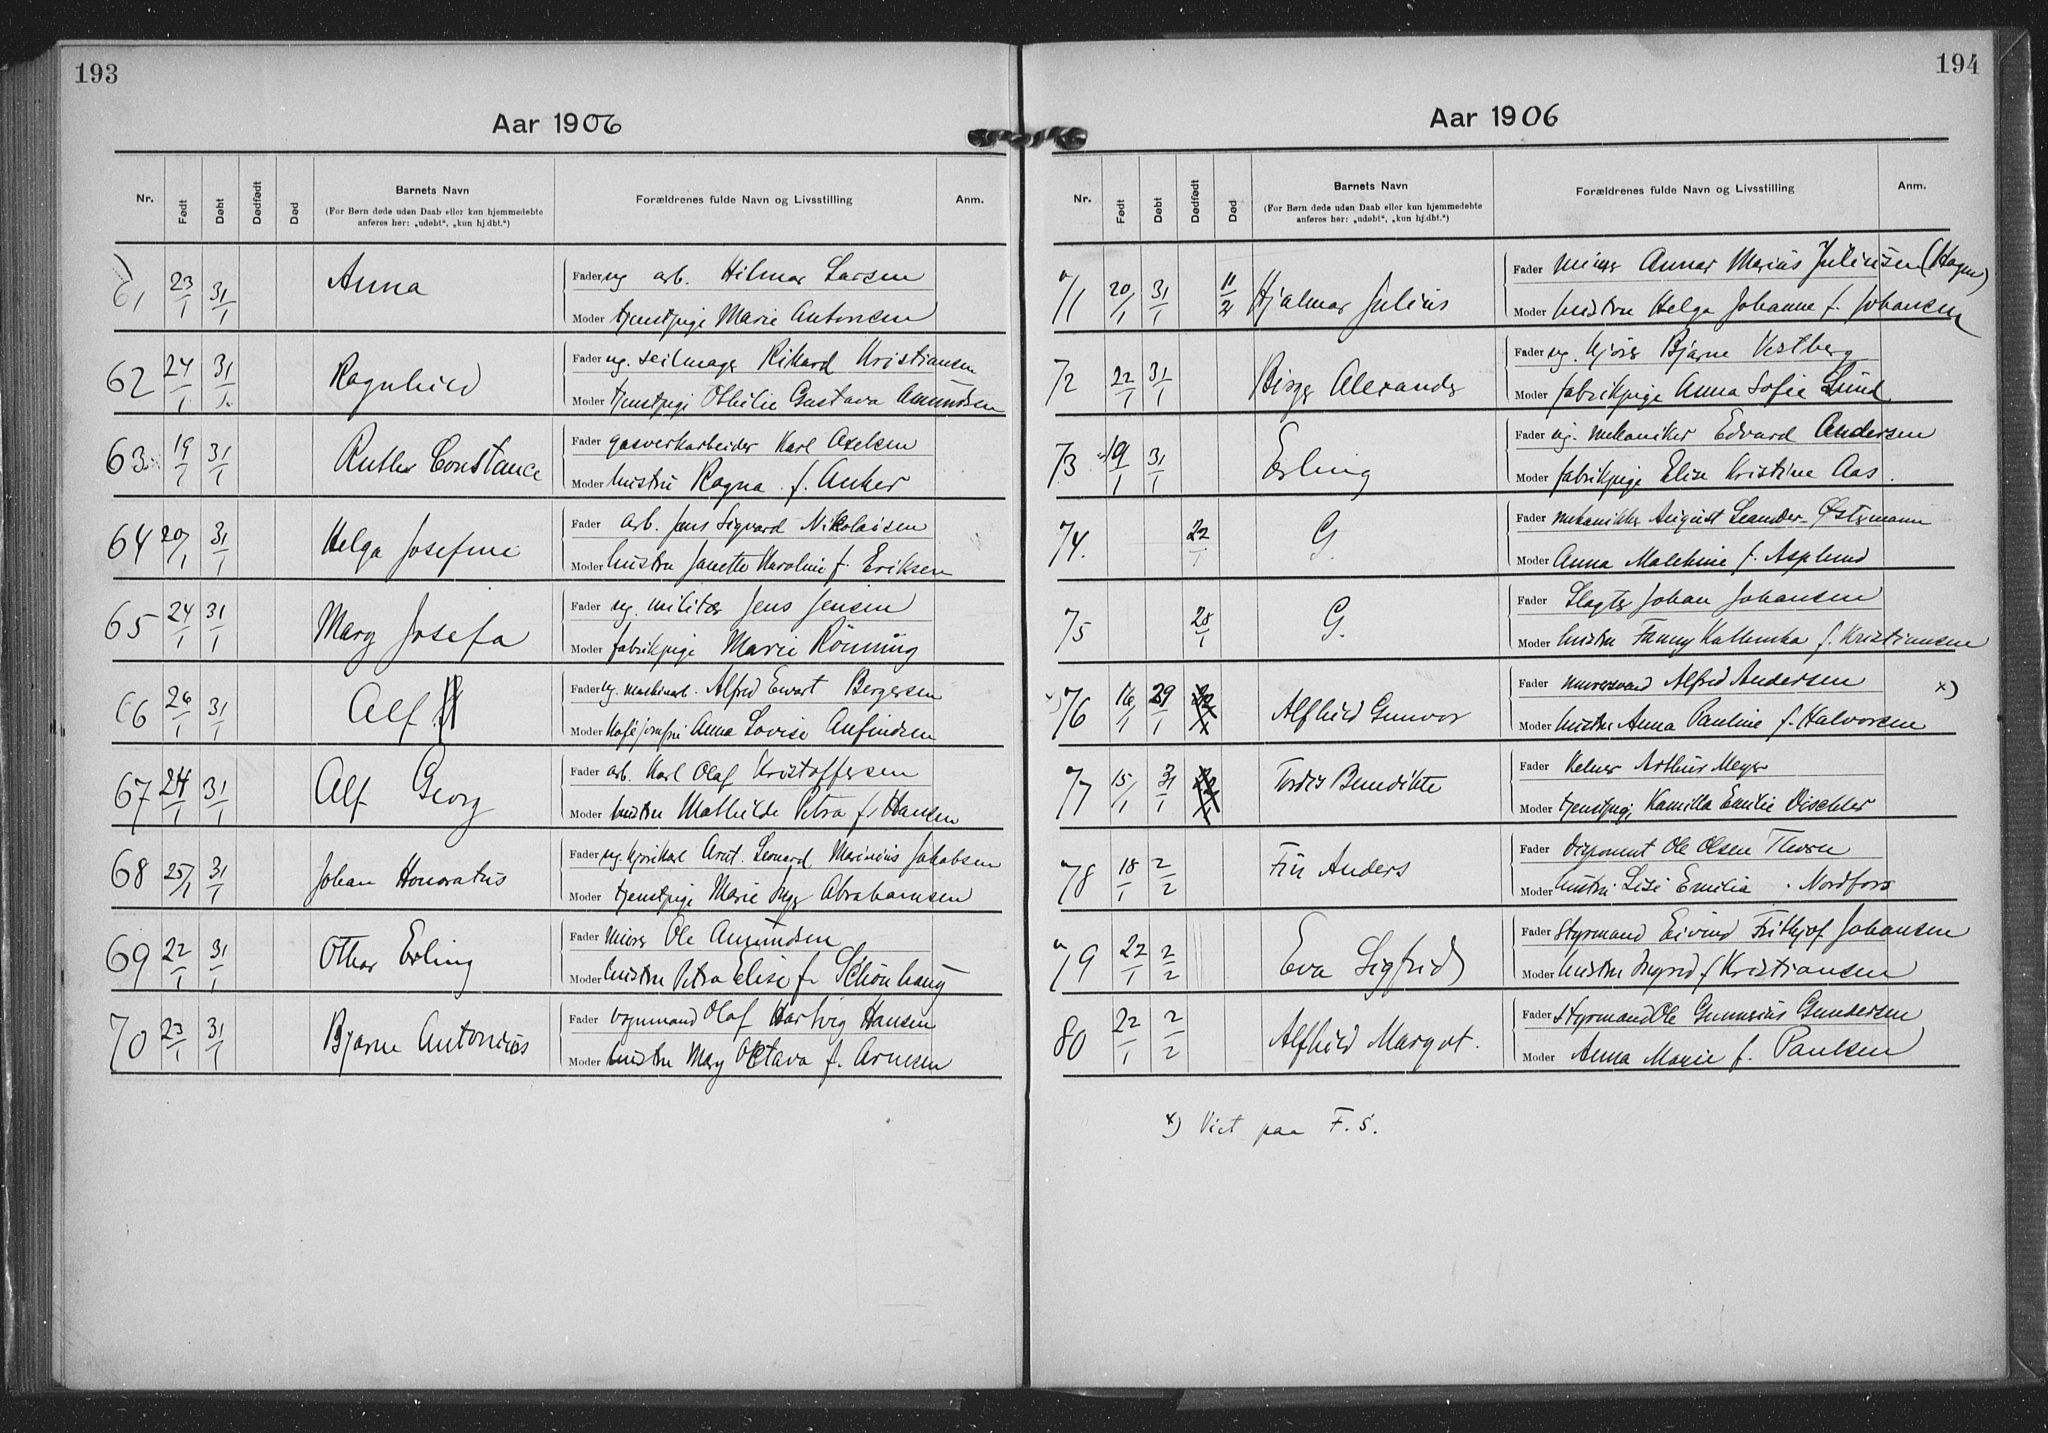 193
Aar 1906
Nr. Født Døbt Dødfødt Død Barnets Navn Forældrenes fulde Navn og Livsstilling Anm.
(For Børn døde uden Daab eller kun hjemmedøbte
anføres her: „udøbt“, „kun hj.dbt.“)
61 23/1 31/1 Anna Fader ug arb. Hilmar Larsen
Moder tjenstpige Marie Antonsen
62 24/1 31/1 Ragnhild Fader ug. seilmager Rikard Kristiansen
Moder tjenstpige Othilie Gustava Amundsen
63 19/1 31/1 Ruth Constance Fader gasverkarbeider Karl Axelsen
Moder hustru Ragna f. Anker
64 20/1 31/1 Helga Josefine Fader arb. Jens Sigvard Nikolaisen
Moder hustru Janette Karoline f. Eriksen
65 24/1 31/1 Mary Josefa Fader ug. militær Jens Jensen
Moder fabrikpige Marie Rönning
66 26/1 31/1 Alf Fader ug. maskinarb. Alfred Ewart Bergersen
Moder Anna Lovise Anfindsen
67 24/1 31/1 Alf Georg Fader arb. Karl Olaf Kristoffersen
Moder hustru Mathilde Petra f. Hansen
68 25/1 31/1 Johan Honoratus Fader ug. kjørekarl Arnt Leonard Marinius Jakobsen
Moder tjenstpige Marie Inga Abrahamsen
69 22/1 31/1 Othar Erling Fader murer Ole Amundsen
Moder hustru Petra Elise f. Schönhaug
70 23/1 31/1 Bjarne Antonius Fader vognmand Olaf Hartvig Hansen
Moder hustru Mary Octava f. Arnesen
194
Aar 1906
Nr. Født Døbt Dødfødt Død Barnets Navn Forældrenes fulde Navn og Livsstilling Anm.
(For Børn døde uden Daab eller kun hjemmedøbte
anføres her: „udøbt“, „kun hj.dbt.“)
71 20/1 31/1 11/2 Hjalmar Julius Fader murer Annar Marius Juliussen (Hagen)
Moder hustru Helga Johanne f. Johansen
72 22/1 31/1 Birger Alexander Fader ug. kjører Bjarne Vestberg
Moder fabrikpige Anna Sofie Lund
73 19/1 31/1 Erling Fader ug. mekaniker Edvard Andersen
Moder fabrikpige Elise Kristine Aas.
74. 22/1 G. Fader mekaniker August Leander Østermann
Moder Anna f. Asplund
75 28/1 G. Fader Slagter Johan Johansen
Moder hustru Fanny f. Kristiansen
76 16/1 29/1 Alfhild Gunvor Fader murersvend Alfred Andersen x)
Moder hustru Anna Pauline f. Halvorsen
77 15/1 31/1 Tordis Benedikte Fader Kelner Arthur Meyer
Moder tjenstpige Kamilla Emilie Dischler
78 18/1 2/2 Anders Fader Disponent Ole Olsen
Moder hustru Lise Emilia Nordfors
79 22/1 2/2 Eva Sigfrid Fader Styrmand Eivind Frithjof Johansen
Moder hustru Ingrid f. Kristiansen
80 22/1 2/2 Alfhild Margot. Fader styrmand Ole Gunnerius Gundersen
Moder Anna Marie f. Paulsen
x) Viet paa F. S.